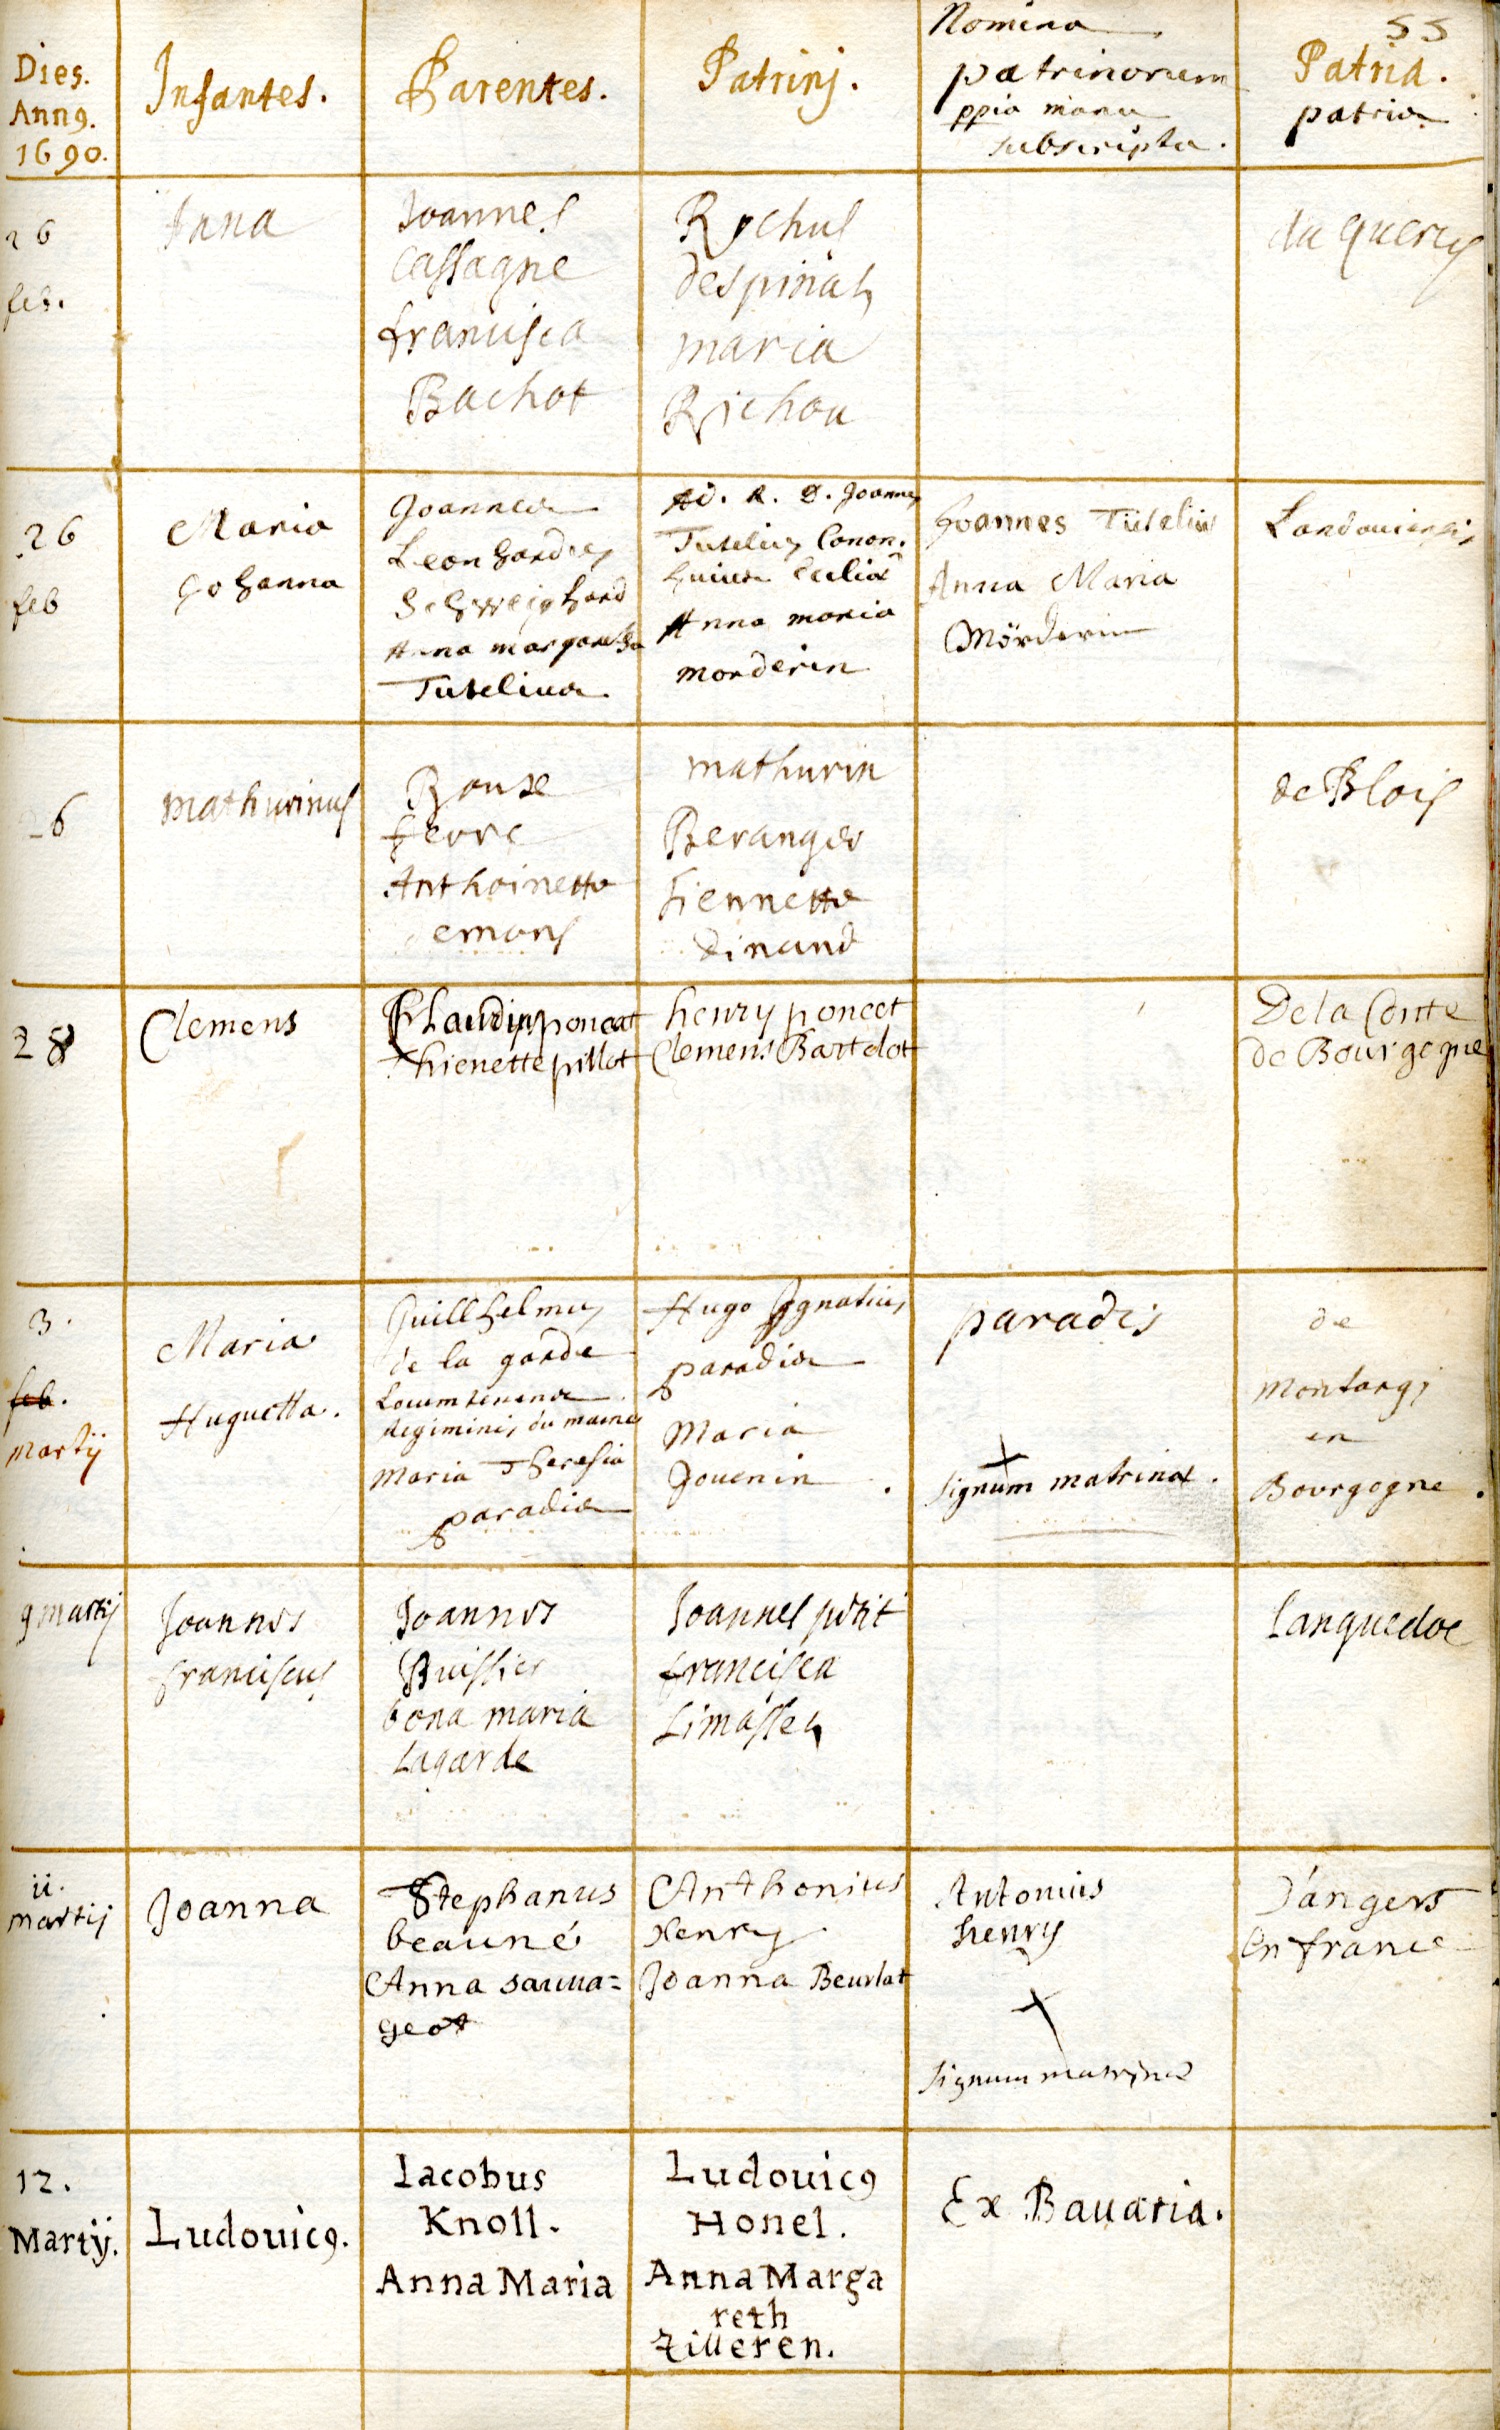 55
Dies.
Ann9.
1690.
Infantes.
Parentes.
Patrinj.
Nomina
patrinorum
ppia manu
subscripta.
Patria.
patria
26
feb.
Anna
Joannes
Cassagne
francisca
Bachot
Rochus
despinas
maria
Richou
du Quercy
26
feb
Maria
Johanna
Joannes
Leonhardus
Schweighard
Anna margaretha
Tutelius
Ad. R. D. Joannes
Tutelius Canon.
huius Eccliæ
Anna maria
morderin
Joannes Tutelius
Anna Maria
Mörderin
Landaviensis
26
mathurinus
ferre
Anthoinette
emons
mathurin
Beranger
tiennette
dinand
de Blois
28
Clemens
Claudius poncet
thienette pillot
henry poncet
Clemens Bartelot
De la Conte
de Bourgogne
3.
feb.
Martij
Maria
Huguetta.
Guillhelmus
de la garde
Locumtenens
Regiminis du maine
Maria Theresia
paradis
Hugo Ignatius
paradis
Maria
Jouenin.
paradis
+
signum matrinæ.
de
Montargi
en
Bourgogne.
9 martij
Joannes
franciscus
Joannes
Buissier
bona maria
Lagarde
Joannes petit
francisca
Limasse
Languedoc
ii.
martij
Joanna
Stephanus
beauné
Anna sauua=
geot
Anthonius
Henry
Joanna Beurlat
Antonius
henry
+
signum matrinæ
D'angers
En france
12.
Martij.
Ludouic9.
Iacobus
Knoll.
Anna Maria
Ludouic9
Honel.
Anna Marga
reth
Zilleren.
Ex Bauaria.